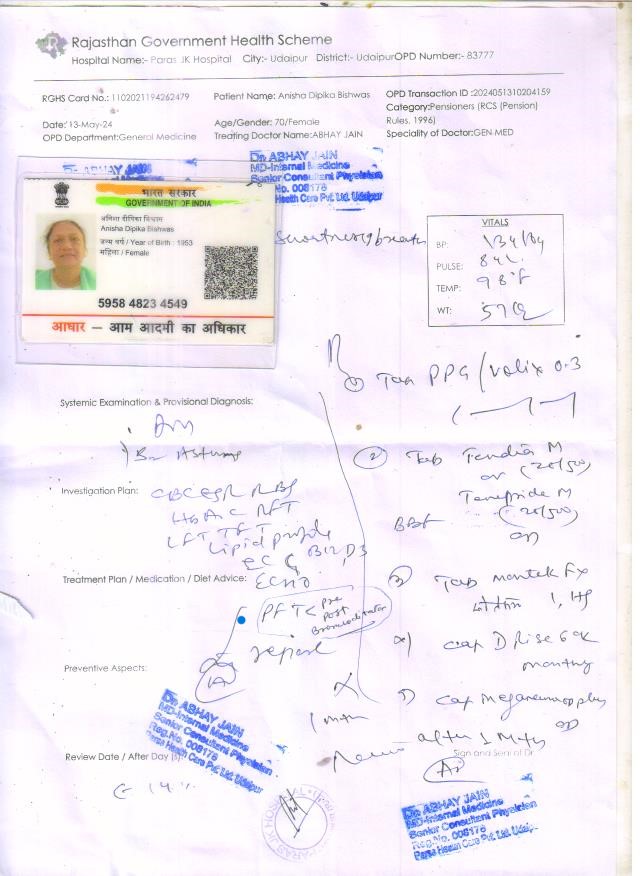 Rajasthan Government Health Scheme
Hospital Name:- Paras JK Hospital City:- Udaipur District:- Udaipur OPD Number:- 83777
RGHS Card No.: 1102021194262479
Patient Name: Anisha Dipika Bishwas
OPD Transaction ID :2024051310204159
Category:Pensioners (RCS (Pension) Rules, 1996)
Date: 13-May-24
Age/Gender: 70/Female
OPD Department:General Medicine
Treating Doctor Name:ABHAY JAIN
Speciality of Doctor:GEN MED
Dr. ABHAY JAIN
MD-Internal Medicine
Senior Consultant Physician
No. 008176
Health Care Pvt. Ltd. Udaipur
भारत सरकार
GOVERNMENT OF INDIA
अनिशा दीपिका विश्वास
Anisha Dipika Bishwas
जन्म वर्ष / Year of Birth : 1953
महिला / Female
5958 4823 4549
आधार — आम आदमी का अधिकार
VITALS
BP:
PULSE:
TEMP: 98°F
WT:
Tab PPG/Volix 0.3
Systemic Examination & Provisional Diagnosis:
DM
Tab Tendia M
or (20/500)
(20/500)
Investigation Plan:
CBC ESR RBS
HbA1C RFT
LFT TFT
Lipid profile
ECG B12, D3
BBF
Treatment Plan / Medication / Diet Advice:
Tab Montek Fx
PFT pre
post
Bronchodilator
repeat
Cap D Rise 60K
monthly
Preventive Aspects:
after 1 Mth
Sign and Seal of Dr
Dr. ABHAY JAIN
MD-Internal Medicine
Senior Consultant Physician
Reg.No. 008176
Paras Health Care Pvt. Ltd. Udaipur
Review Date / After Day (s):
PARAS JK HOSPITAL
Dr. ABHAY JAIN
MD-Internal Medicine
Senior Consultant Physician
Reg.No. 008176
Paras Health Care Pvt. Ltd. Udaipur